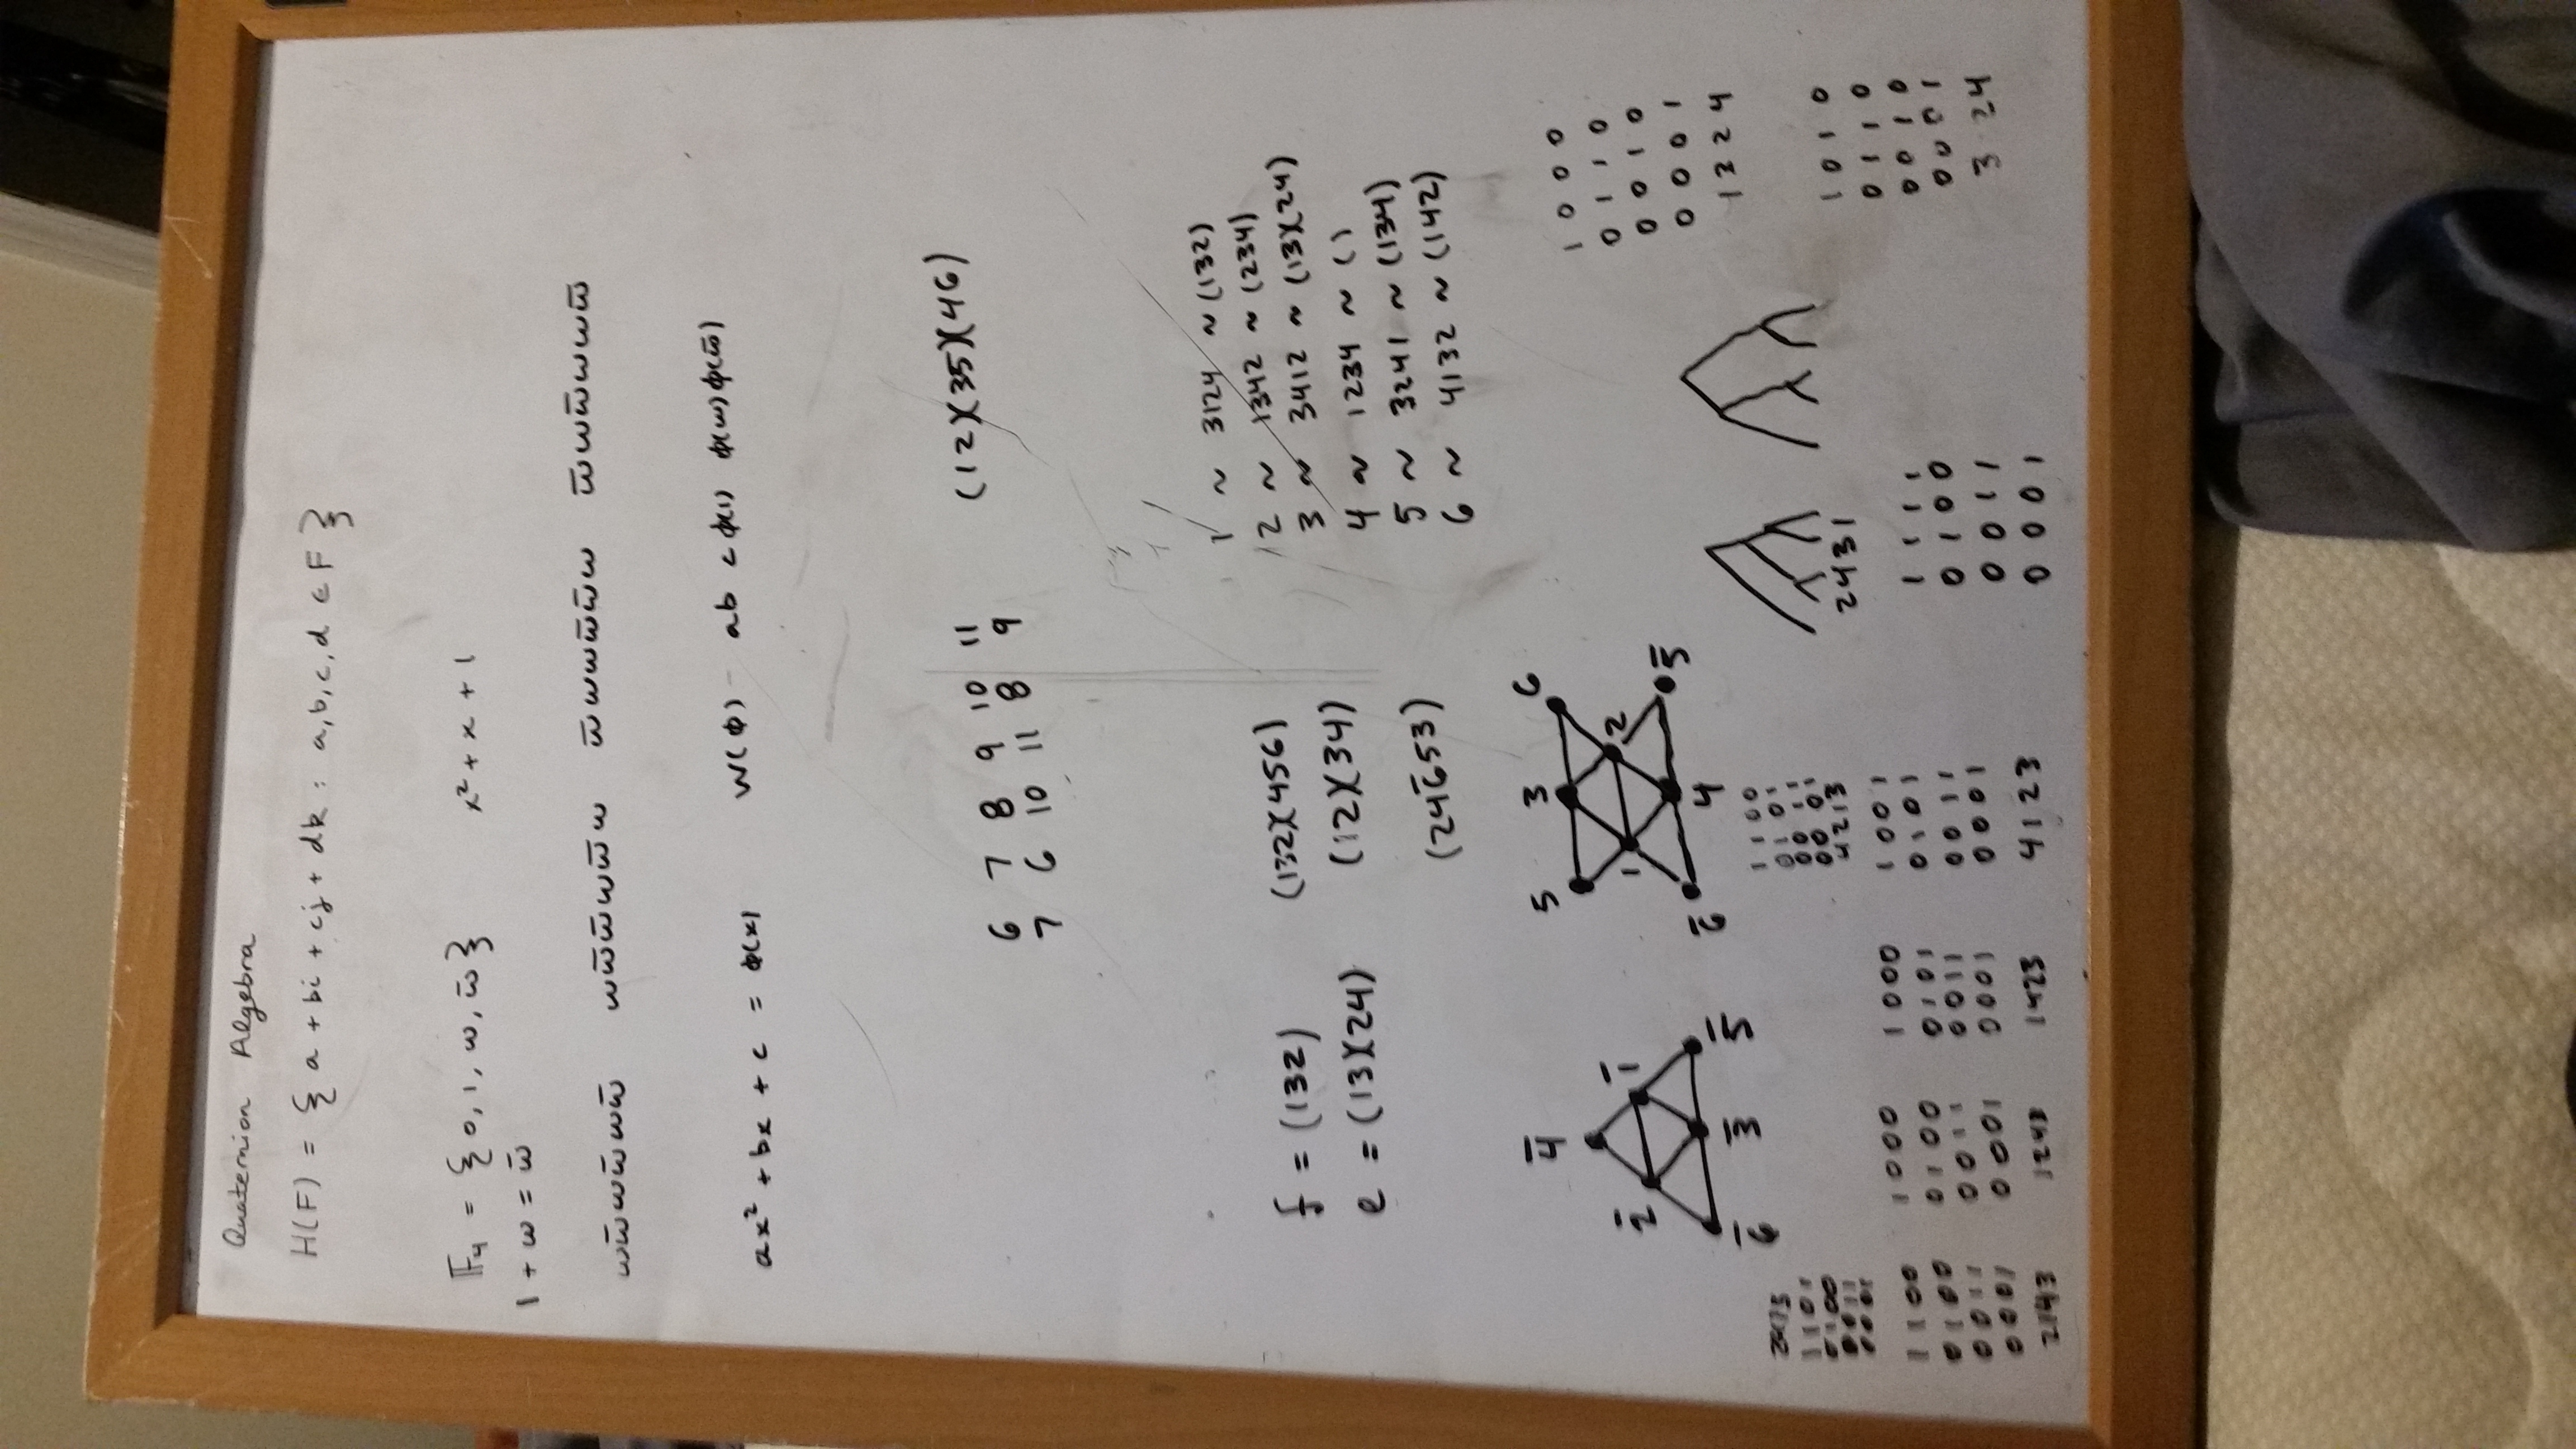 Quaternion Algebra
H(F) = { a + bi + cj + dk : a,b,c,d ∈ F }
𝔽₄ = { 0, 1, ω, ω̄ } x² + x + 1
1 + ω = ω̄
ωω̄ωω̄ωω̄ ωω̄ω̄ωω̄ω ω̄ωωω̄ω̄ω ω̄ωω̄ωωω̄
ax² + bx + c = ϕ(x) W(ϕ) ab c ϕ(1) ϕ(ω) ϕ(ω̄)
6 7 8 9 10 11 (12)(35)(46)
7 6 10 11 8 9
1 ~ 3124 ~ (132)
2 ~ 1342 ~ (234)
3 ~ 3412 ~ (13)(24)
4 ~ 1234 ~ ()
5 ~ 3241 ~ (134)
6 ~ 4132 ~ (142)
f = (132) (132)(456)
e = (13)(24) (12)(34)
(24̄653)
4̄
2̄ 1̄
6̄ 3̄ 5̄
5 3 6
1 2
6̄ 4 5̄
1 0 0 0
0 1 1 0
0 0 1 0
0 0 0 1
1 3 2 4
2413
1 1 0 1
0 1 0 0
0 0 1 1
0 0 0 1
1 1 0 0
0 1 0 1
0 0 1 1
0 0 0 1
4 2 1 3
2431
1 1 0 0
0 1 0 0
0 0 1 1
0 0 0 1
2143
1 0 0 0
0 1 0 0
0 0 1 1
0 0 0 1
1243
1 0 0 0
0 1 0 1
0 0 1 1
0 0 0 1
1423
1 0 0 1
0 1 0 1
0 0 1 1
0 0 0 1
4 1 2 3
1 1 1 1
0 1 0 0
0 0 1 1
0 0 0 1
1 0 1 0
0 1 1 0
0 0 1 0
0 0 0 1
3 24